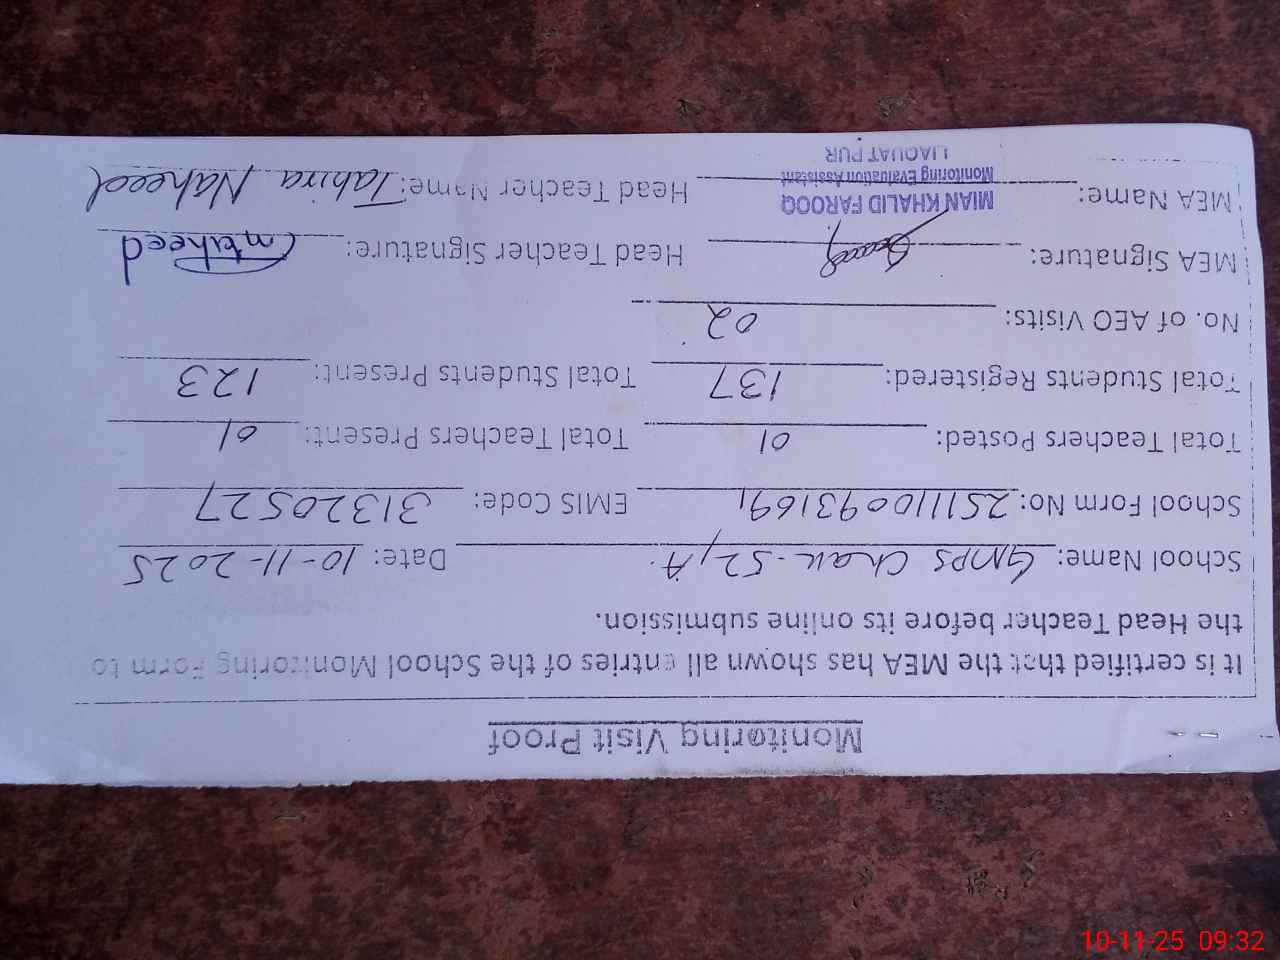 Monitoring Visit Proof
It is certified that the MEA has shown all entries of the School Monitoring Form to
the Head Teacher before its online submission.
School Name: GMPS Chak-52/A. Date: 10-11-2025
School Form No: 2511110093169 EMIS Code: 31320527
Total Teachers Posted: 01 Total Teachers Present: 01
Total Students Registered: 137 Total Students Present: 123
No. of AEO Visits: 02
MEA Signature: Head Teacher Signature:
MEA Name: MIAN KHALID FAROOQ Head Teacher Name: Tahira Naheed
Monitoring Evaluation Assistant
LIAQUAT PUR
10-11-25 09:32